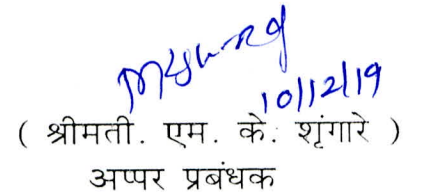 10/12/19
( श्रीमती. एम. के. शृंगारे )
अप्पर प्रबंधक